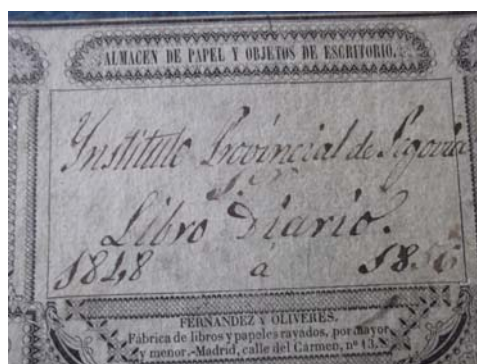 ALMACEN DE PAPEL Y OBJETOS DE ESCRITORIO.
Instituto Provincial de Segovia
Libro Diario.
1848 a 1856
FERNANDEZ Y OLIVERES.
Fábrica de libros y papeles rayados, por mayor
y menor.-Madrid, calle del Carmen, nº 13.